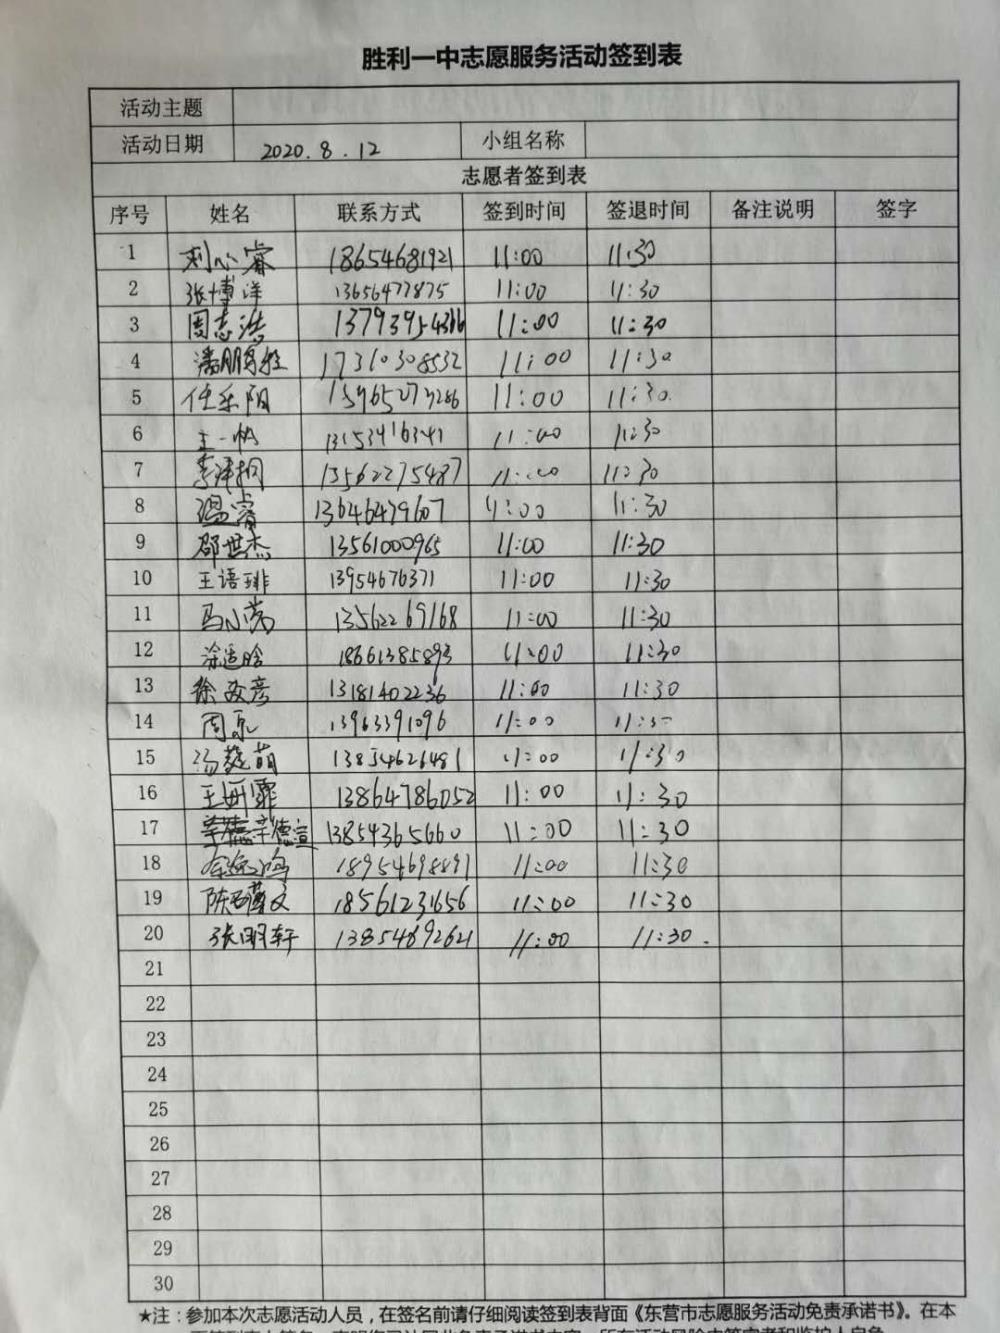 胜利一中志愿服务活动签到表
活动主题
活动日期 2020.8.12 小组名称
志愿者签到表
序号 姓名 联系方式 签到时间 签退时间 备注说明 签字
1 刘心睿 18654681921 11:00 11:30
2 张博洋 13656477875 11:00 11:30
3 周志浩 11:00 11:30
4 17310308532 11:00 11:30
5 任乐阳 11:00 11:30
6 王一帆 11:00 11:30
7 李泽桐 13562275487 11:00 11:30
8 温睿 13646479607 11:00 11:30
9 邵世杰 13561000965 11:00 11:30
10 王语琲 13954676371 11:00 11:30
11 13562269168 11:00 11:30
12 18661385893 11:00 11:30
13 13181402236 11:00 11:30
14 13963391096 11:00 11:30
15 13854626481 11:00 11:30
16 王妍霏 13864786052 11:00 11:30
17 辛德宣 13854365660 11:00 11:30
18 18954698891 11:00 11:30
19 18561231656 11:00 11:30
20 张明轩 13854692621 11:00 11:30.
21
22
23
24
25
26
27
28
29
30
★注：参加本次志愿活动人员，在签名前请仔细阅读签到表背面《东营市志愿服务活动免责承诺书》。在本